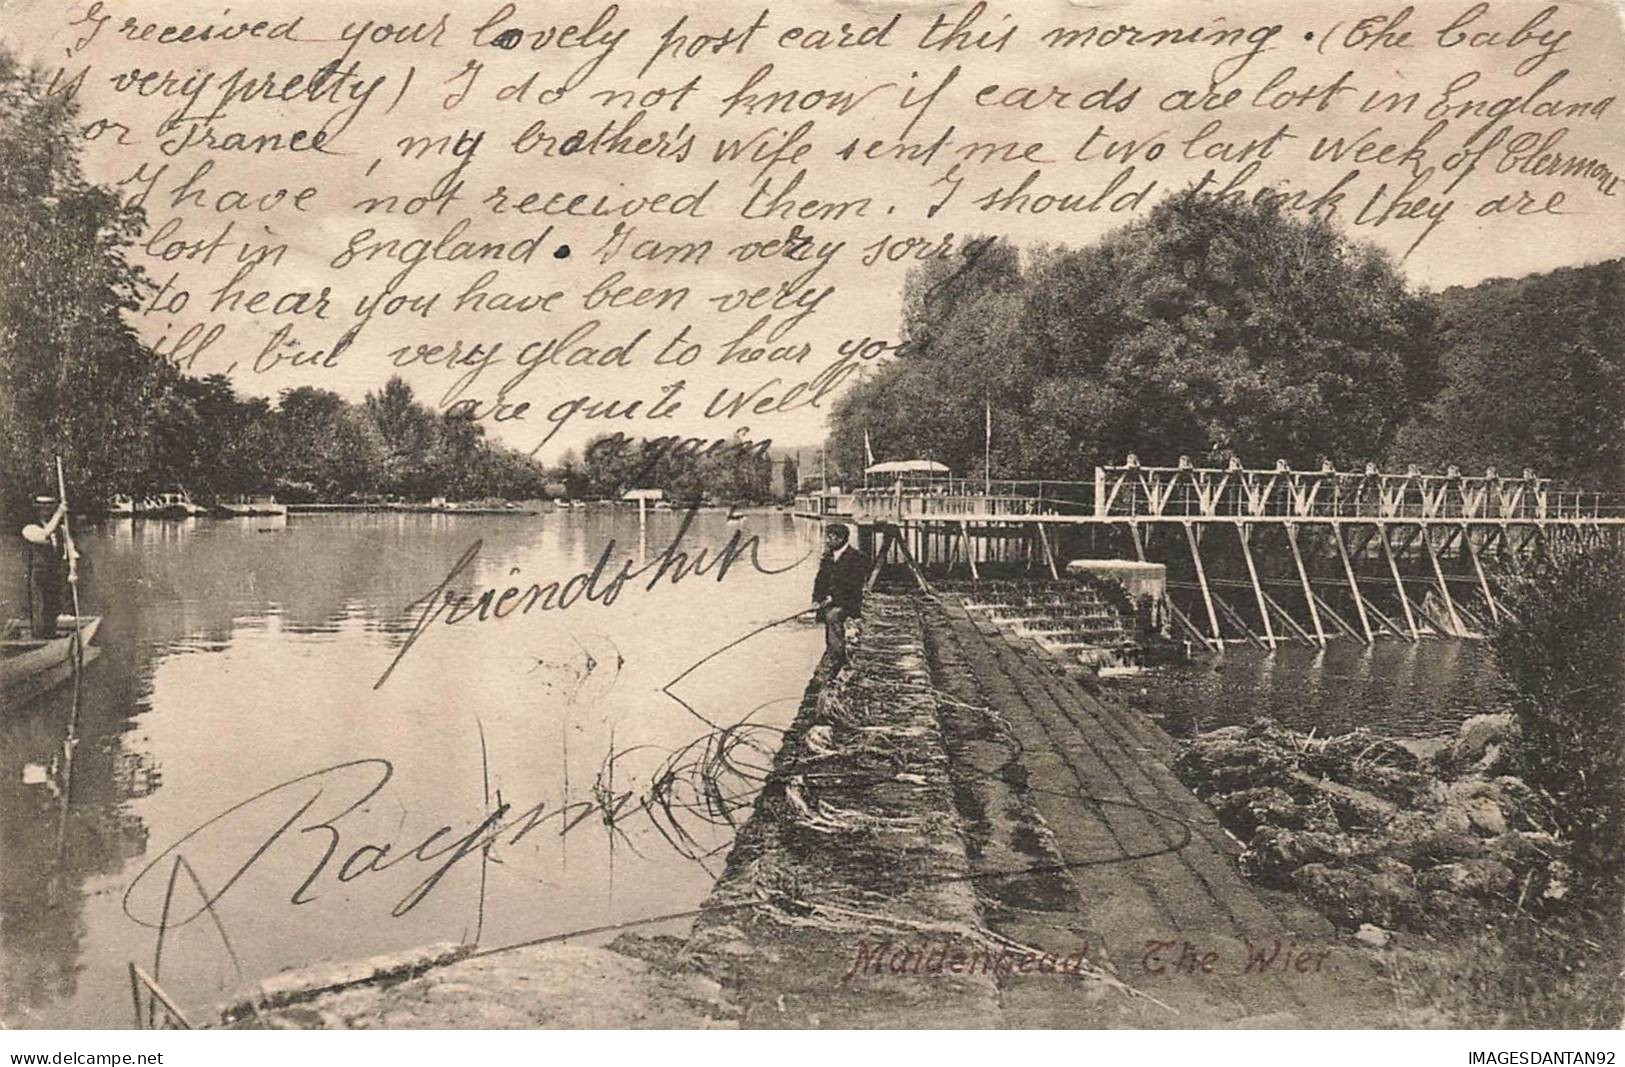 I received your lovely post card this morning. (The baby
is very pretty) I do not know if cards are lost in England
or France, my brother's wife sent me two last week of Clermont
I have not received them. I should think they are
lost in England. I am very sorry
to hear you have been very
ill, but very glad to hear you
are quite well
again
friendship
Raym
Maidenhead The Wier
www.delcampe.net
IMAGESDANTAN92